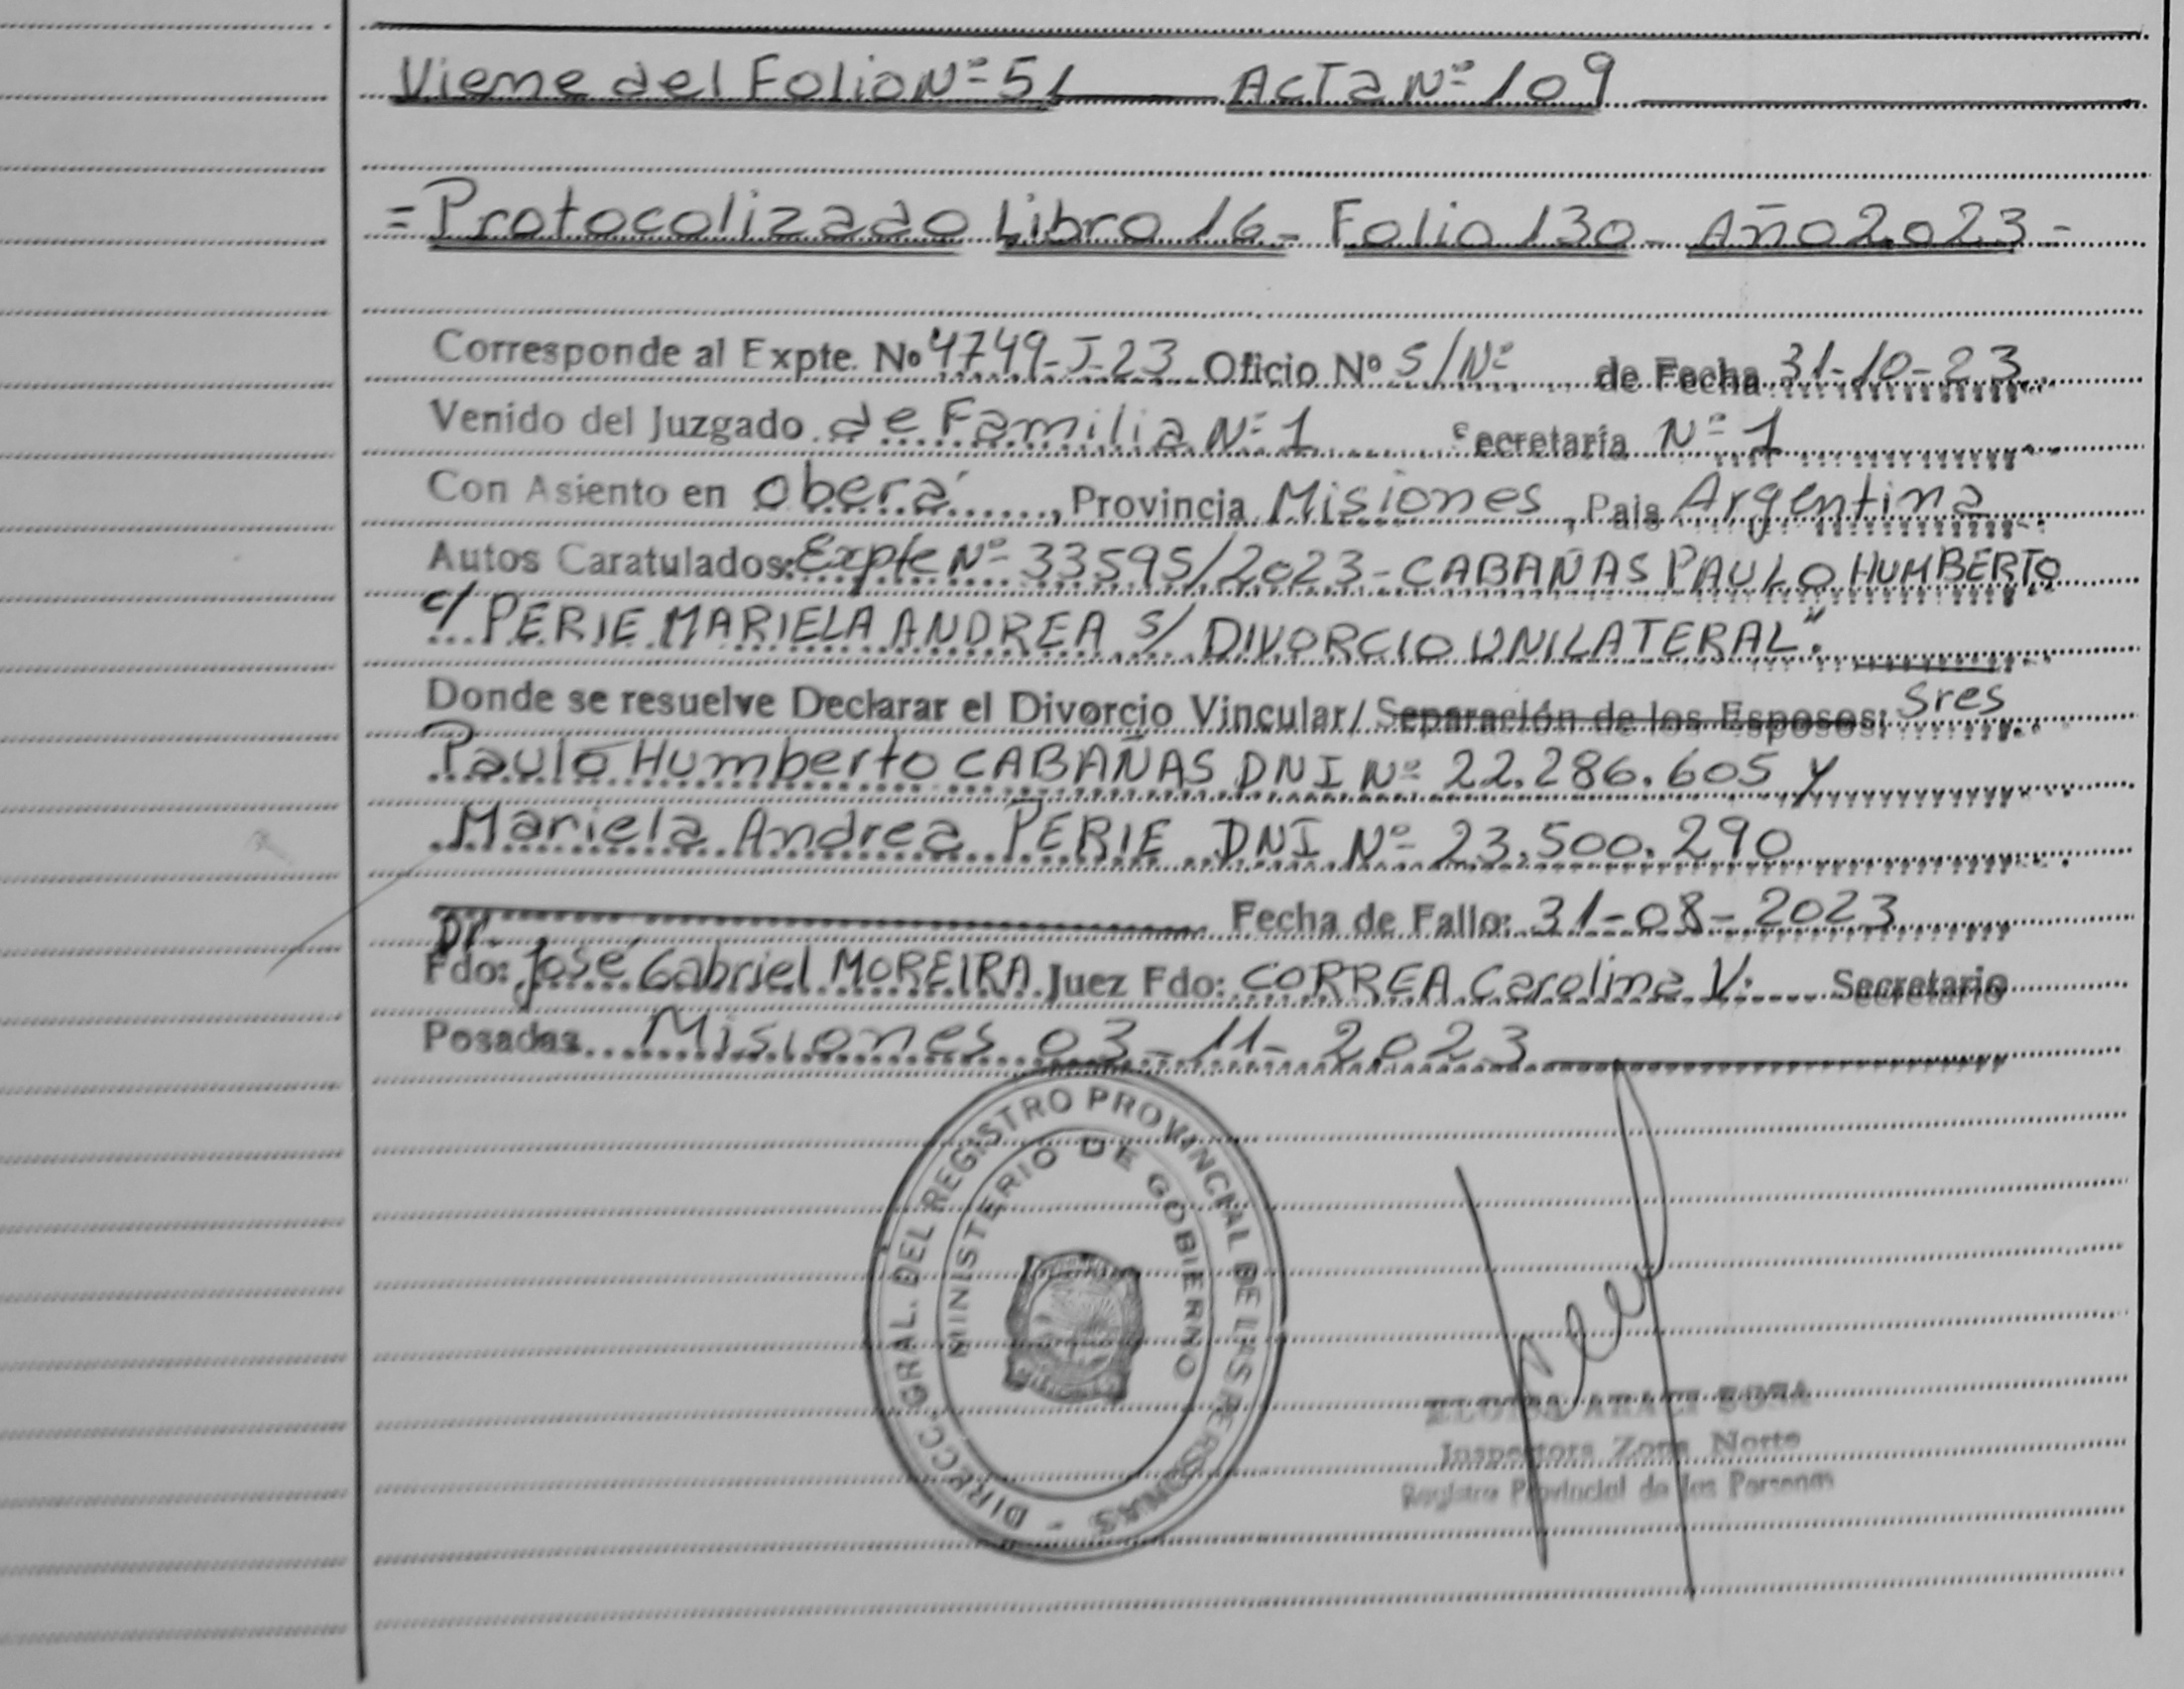 Viene del Folio Nº 51 Acta Nº 109
= Protocolizado Libro 16- Folio 130- Año 2023-
Corresponde al Expte. Nº 4749-J-23 Oficio Nº S/Nº de Fecha 31-10-23
Venido del Juzgado de Familia Nº 1 Secretaría Nº 1
Con Asiento en Oberá, Provincia Misiones, Pais Argentina
Autos Caratulados: Expte Nº 33595/2023-CABAÑAS PAULO HUMBERTO
c/ PERIE MARIELA ANDREA s/ DIVORCIO UNILATERAL".
Donde se resuelve Declarar el Divorcio Vincular/ Separación de los Esposos: Sres
Paulo Humberto CABAÑAS DNI Nº 22.286.605 y
Mariela Andrea PERIE DNI Nº 23.500.290
Fecha de Fallo: 31-08-2023
Dr.
Fdo: José Gabriel MOREIRA Juez Fdo: CORREA Carolina V. Secretario
Posadas Misiones 03-11-2023
DIRECC. GRAL. DEL REGISTRO PROVINCIAL DE LAS PERSONAS -
MINISTERIO DE GOBIERNO
ELOISA ARACI SOSA
Inspectora Zona Norte
Registro Provincial de las Personas